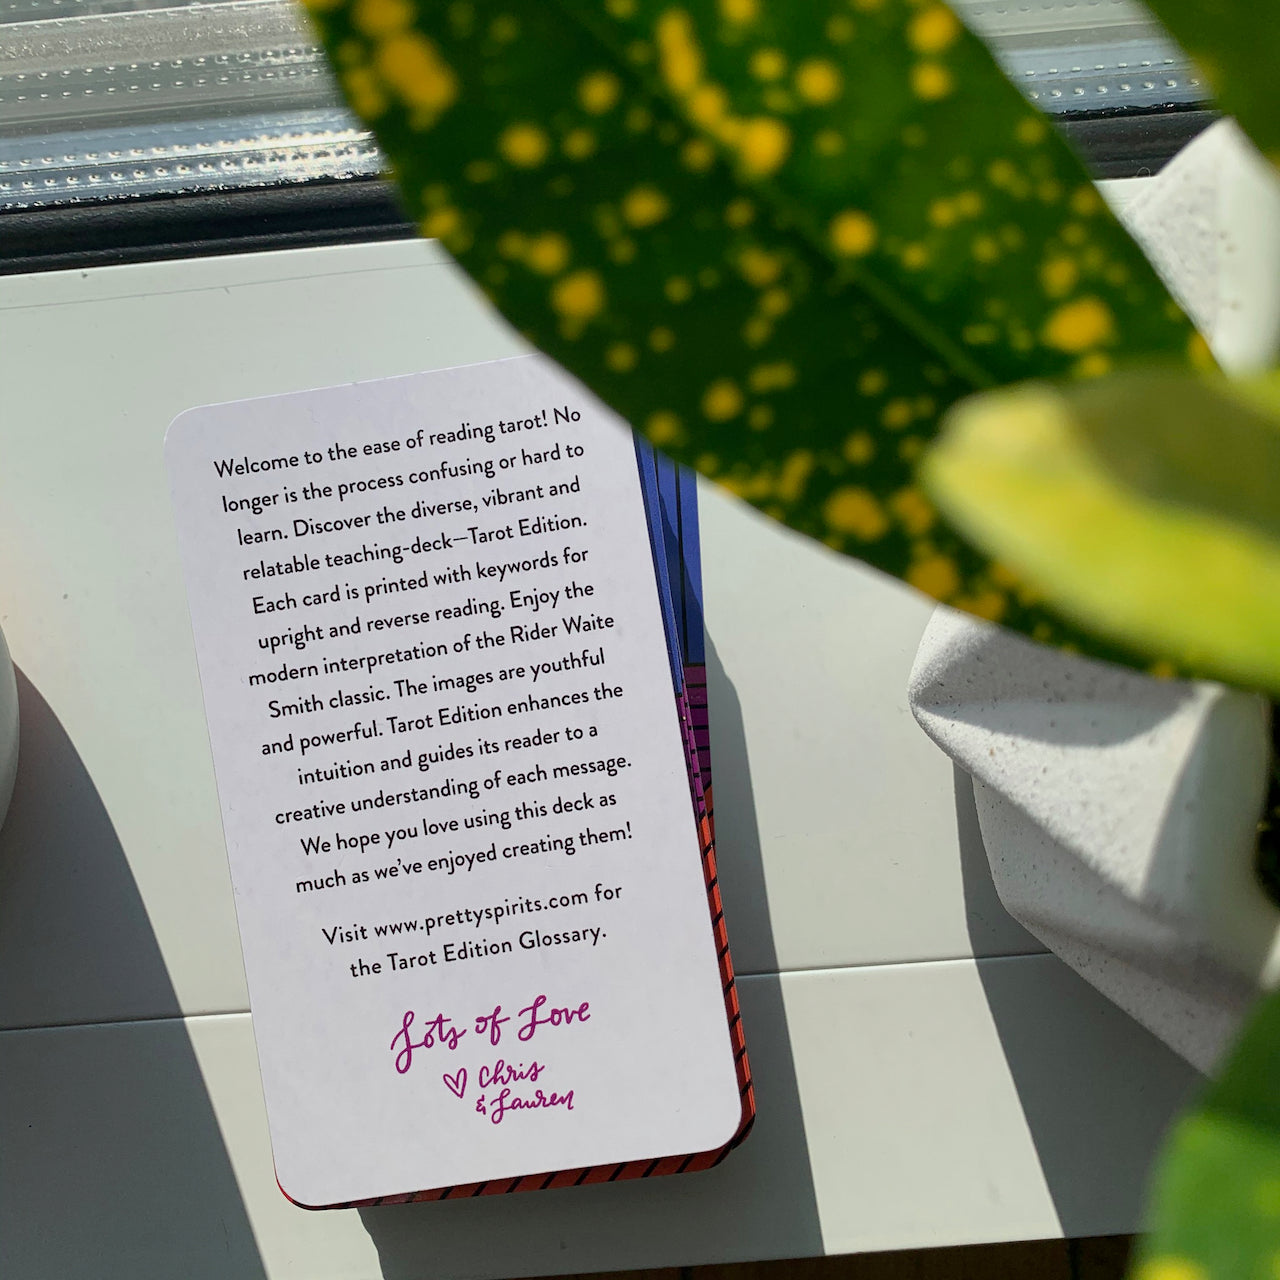 Welcome to the ease of reading tarot! No
longer is the process confusing or hard to
learn. Discover the diverse, vibrant and
relatable teaching-deck—Tarot Edition.
Each card is printed with keywords for
upright and reverse reading. Enjoy the
modern interpretation of the Rider Waite
Smith classic. The images are youthful
and powerful. Tarot Edition enhances the
intuition and guides its reader to a
creative understanding of each message.
We hope you love using this deck as
much as we’ve enjoyed creating them!
Visit www.prettyspirits.com for
the Tarot Edition Glossary.
Lots of Love
♡ Chris
& Lauren